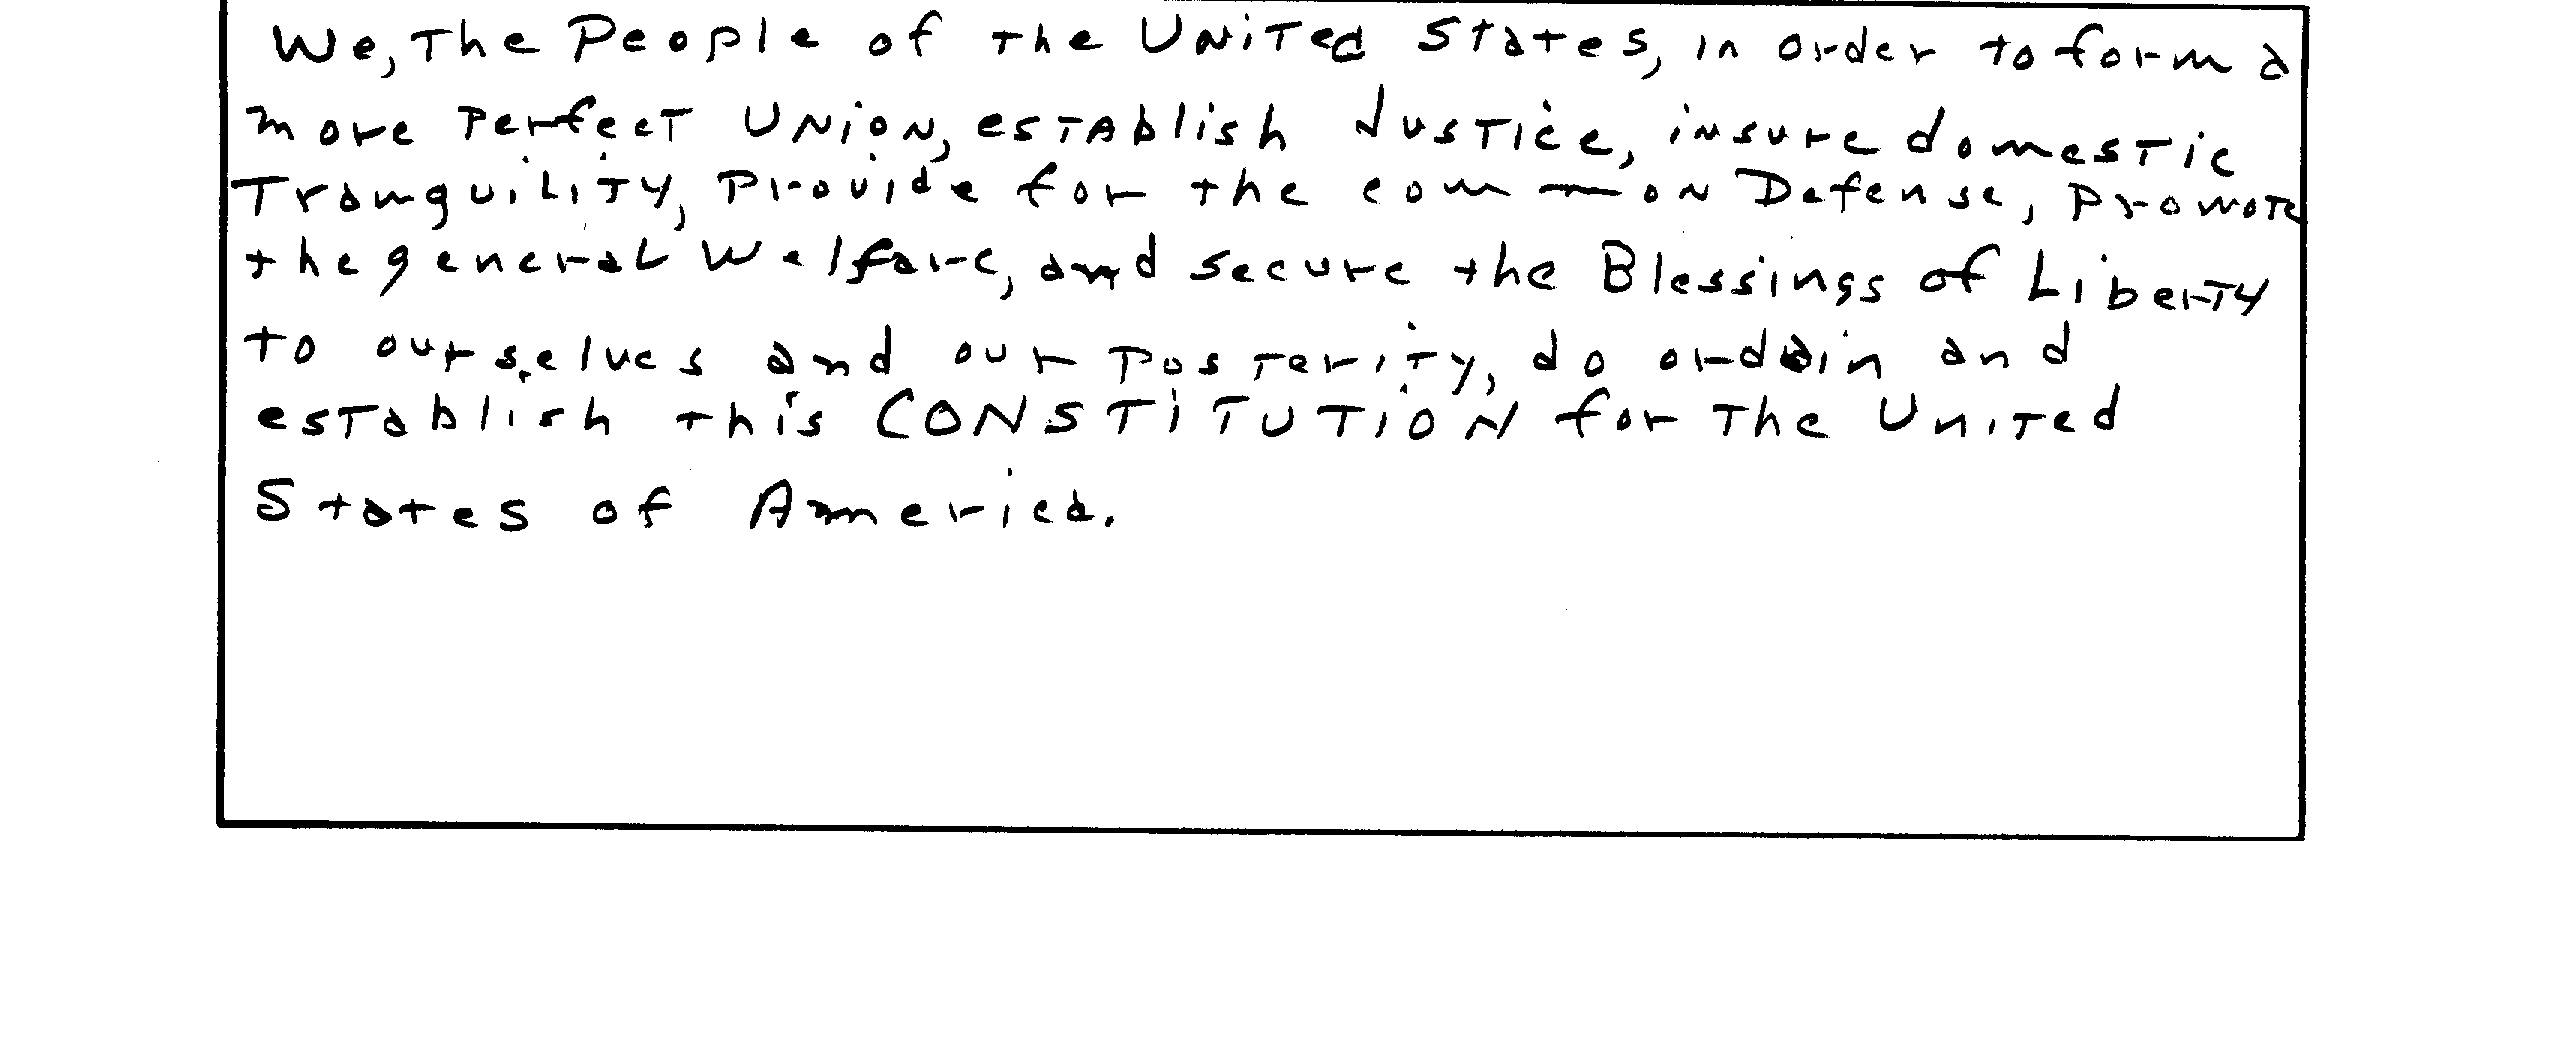 We, The People of the United States, in order to form a
more Perfect Union, establish Justice, insure domestic
Tranquility, Provide for the common Defense, Promote
the general Welfare, and secure the Blessings of Liberty
to ourselves and our Posterity, do ordain and
establish this CONSTITUTION for The United
States of America.